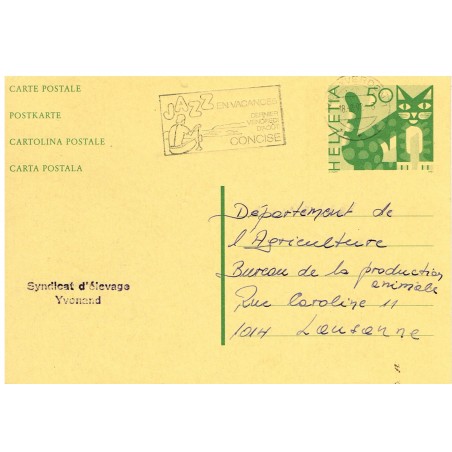 CARTE POSTALE
POSTKARTE
CARTOLINA POSTALE
CARTA POSTALA
JAZZ EN VACANCES
DERNIER
CONCISE
HELVETIA 50
18.
Département de
l'Agriculture
Bureau de la production
animale
Rue Caroline 11
1014 Lausanne
Syndicat d'élevage
Yvonand